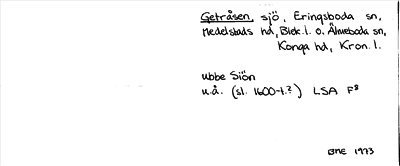 Getråsen, sjö, Eringsboda sn,
Medelstads hd, Blek. l. o. Älmeboda sn,
Konga hd, Kron. l.
ubbe Siön
u.å. (sl. 1600-t.?) LSA F8
BME 1973